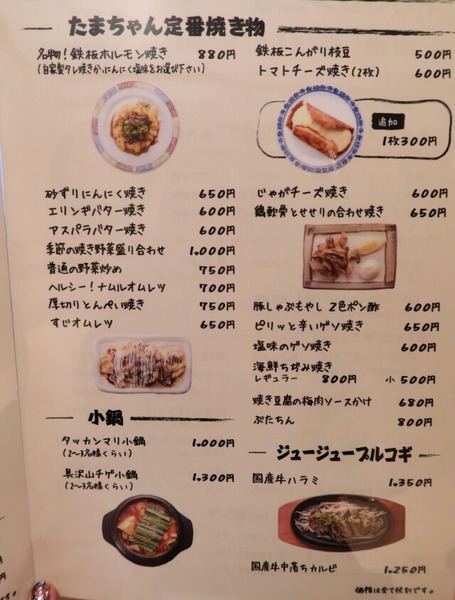 たまちゃん定番焼き物
名物！鉄板ホルモン焼き 880円
(自家製タレ焼きかにんにく塩味をお選び下さい)
砂ずりにんにく焼き 650円
エリンギバター焼き 600円
アスパラバター焼き 600円
季節の焼き野菜盛り合わせ 1,000円
普通の野菜炒め 750円
ヘルシー！ナムルオムレツ 700円
厚切りとんぺい焼き 750円
すじオムレツ 650円
小鍋
タッカンマリ小鍋 1,000円
(2〜3名様くらい)
具沢山チゲ小鍋 1,300円
(2〜3名様くらい)
鉄板こんがり枝豆 500円
トマトチーズ焼き(2枚) 600円
追加
1枚300円
じゃがチーズ焼き 600円
鶏軟骨とせせりの合わせ焼き 650円
豚しゃぶもやし 2色ポン酢 600円
ピリッと辛いゲソ焼き 650円
塩味のゲソ焼き 600円
海鮮ちぢみ焼き
レギュラー 800円 小 500円
焼き豆腐の梅肉ソースかけ 680円
ぶたちん 800円
ジュージュープルコギ
国産牛ハラミ 1,350円
国産牛中落ちカルビ 1,250円
価格は全て税別です。